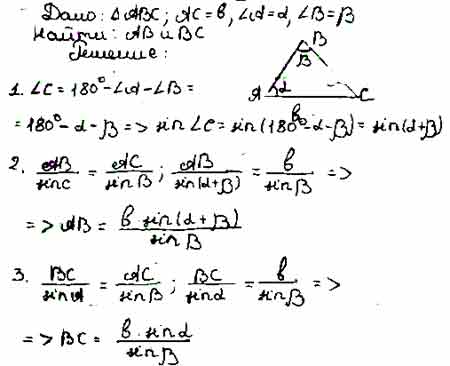 Дано: △ABC; AC=b, ∠A=α, ∠B=β
Найти: AB и BC
Решение:
B
β
A α C
b
1. ∠C = 180° - ∠A - ∠B =
= 180° - α - β => sin∠C = sin(180° - α - β) = sin(α+β)
2. AB/sinC = AC/sinB; AB/sin(α+β) = b/sinβ =>
=> AB = b·sin(α+β)/sinβ
3. BC/sinA = AC/sinB; BC/sinα = b/sinβ =>
=> BC = b·sinα/sinβ